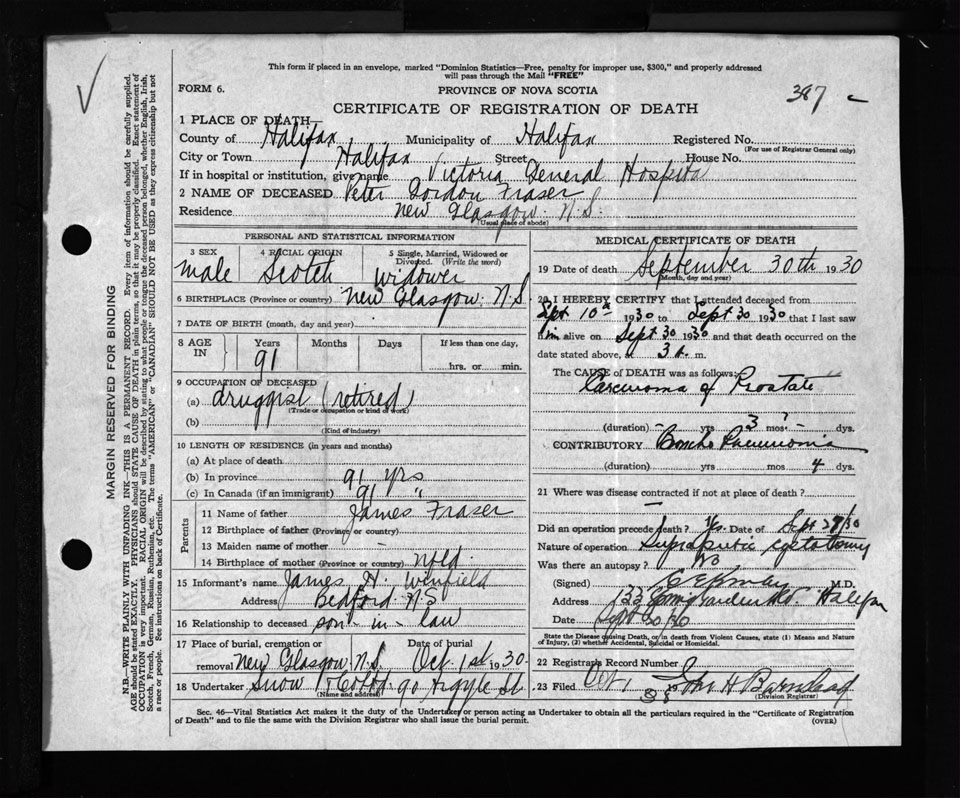 This form if placed in an envelope, marked "Dominion Statistics—Free, penalty for improper use, $300," and properly addressed
will pass through the Mail "FREE"
FORM 6.
PROVINCE OF NOVA SCOTIA
387
CERTIFICATE OF REGISTRATION OF DEATH
1 PLACE OF DEATH—
County of Halifax Municipality of Halifax Registered No.
(For use of Registrar General only)
City or Town Halifax Street House No.
If in hospital or institution, give name Victoria General Hospital
2 NAME OF DECEASED Peter Gordon Fraser
Residence New Glasgow N.S.
(Usual place of abode)
MARGIN RESERVED FOR BINDING
N.B.—WRITE PLAINLY WITH UNFADING INK—THIS IS A PERMANENT RECORD. Every item of information should be carefully supplied.
AGE should be stated EXACTLY. PHYSICIANS should STATE CAUSE OF DEATH in plain terms, so that it may be properly classified. Exact statement of
OCCUPATION is very important. RACIAL ORIGIN will be described by stating to what people or tongue the deceased person belonged, whether English, Irish,
Scotch, French, German, Russian, Ruthenian, etc. The terms "AMERICAN" or "CANADIAN" SHOULD NOT BE USED as they express citizenship but not
a race or people. See instructions on back of Certificate.
PERSONAL AND STATISTICAL INFORMATION
3 SEX 4 RACIAL ORIGIN 5 Single, Married, Widowed or
Divorced. (Write the word)
Male Scotch Widower
6 BIRTHPLACE (Province or country) New Glasgow N.S.
7 DATE OF BIRTH (month, day and year)
8 AGE IN Years Months Days If less than one day,
91 hrs. or min.
9 OCCUPATION OF DECEASED
(a) druggist (retired)
(Trade or occupation or kind of work)
(b)
(Kind of industry)
10 LENGTH OF RESIDENCE (in years and months)
(a) At place of death
(b) In province 91 yrs
(c) In Canada (if an immigrant) 91 "
Parents
11 Name of father James Fraser
12 Birthplace of father (Province or country) —
13 Maiden name of mother —
14 Birthplace of mother (Province or country) Nfld.
15 Informant's name James H. Winfield
Address Bedford N S
16 Relationship to deceased son-in-law
17 Place of burial, cremation or Date of burial
removal New Glasgow N.S. Oct. 1st 1930
18 Undertaker Snow & Co Ltd. 90 Argyle St
(Name and address)
MEDICAL CERTIFICATE OF DEATH
19 Date of death September 30th 1930
(Month, day and year)
20 I HEREBY CERTIFY that I attended deceased from
Sept 10th 1930 to Sept 30 1930 that I last saw
him alive on Sept 30 1930 and that death occurred on the
date stated above, a 3 a. m.
The CAUSE of DEATH was as follows:
Carcinoma of Prostate
(duration) — yrs 3 ? mos — dys.
CONTRIBUTORY Broncho Pneumonia
(duration) yrs mos 4 dys.
21 Where was disease contracted if not at place of death?
—
Did an operation precede death? Yes. Date of Sept 29/30
Nature of operation Suprapubic cystotomy
Was there an autopsy? No
(Signed) M.D.
Address Halifax
Date Sept 30/30
State the Disease causing Death, or in death from Violent Causes, state (1) Means and Nature
of Injury, (2) whether Accidental, Suicidal or Homicidal.
22 Registrar's Record Number
23 Filed Oct 1 John H Barnstead
(Division Registrar)
Sec. 46—Vital Statistics Act makes it the duty of the Undertaker or person acting as Undertaker to obtain all the particulars required in the "Certificate of Registration
of Death" and to file the same with the Division Registrar who shall issue the burial permit.
(OVER)